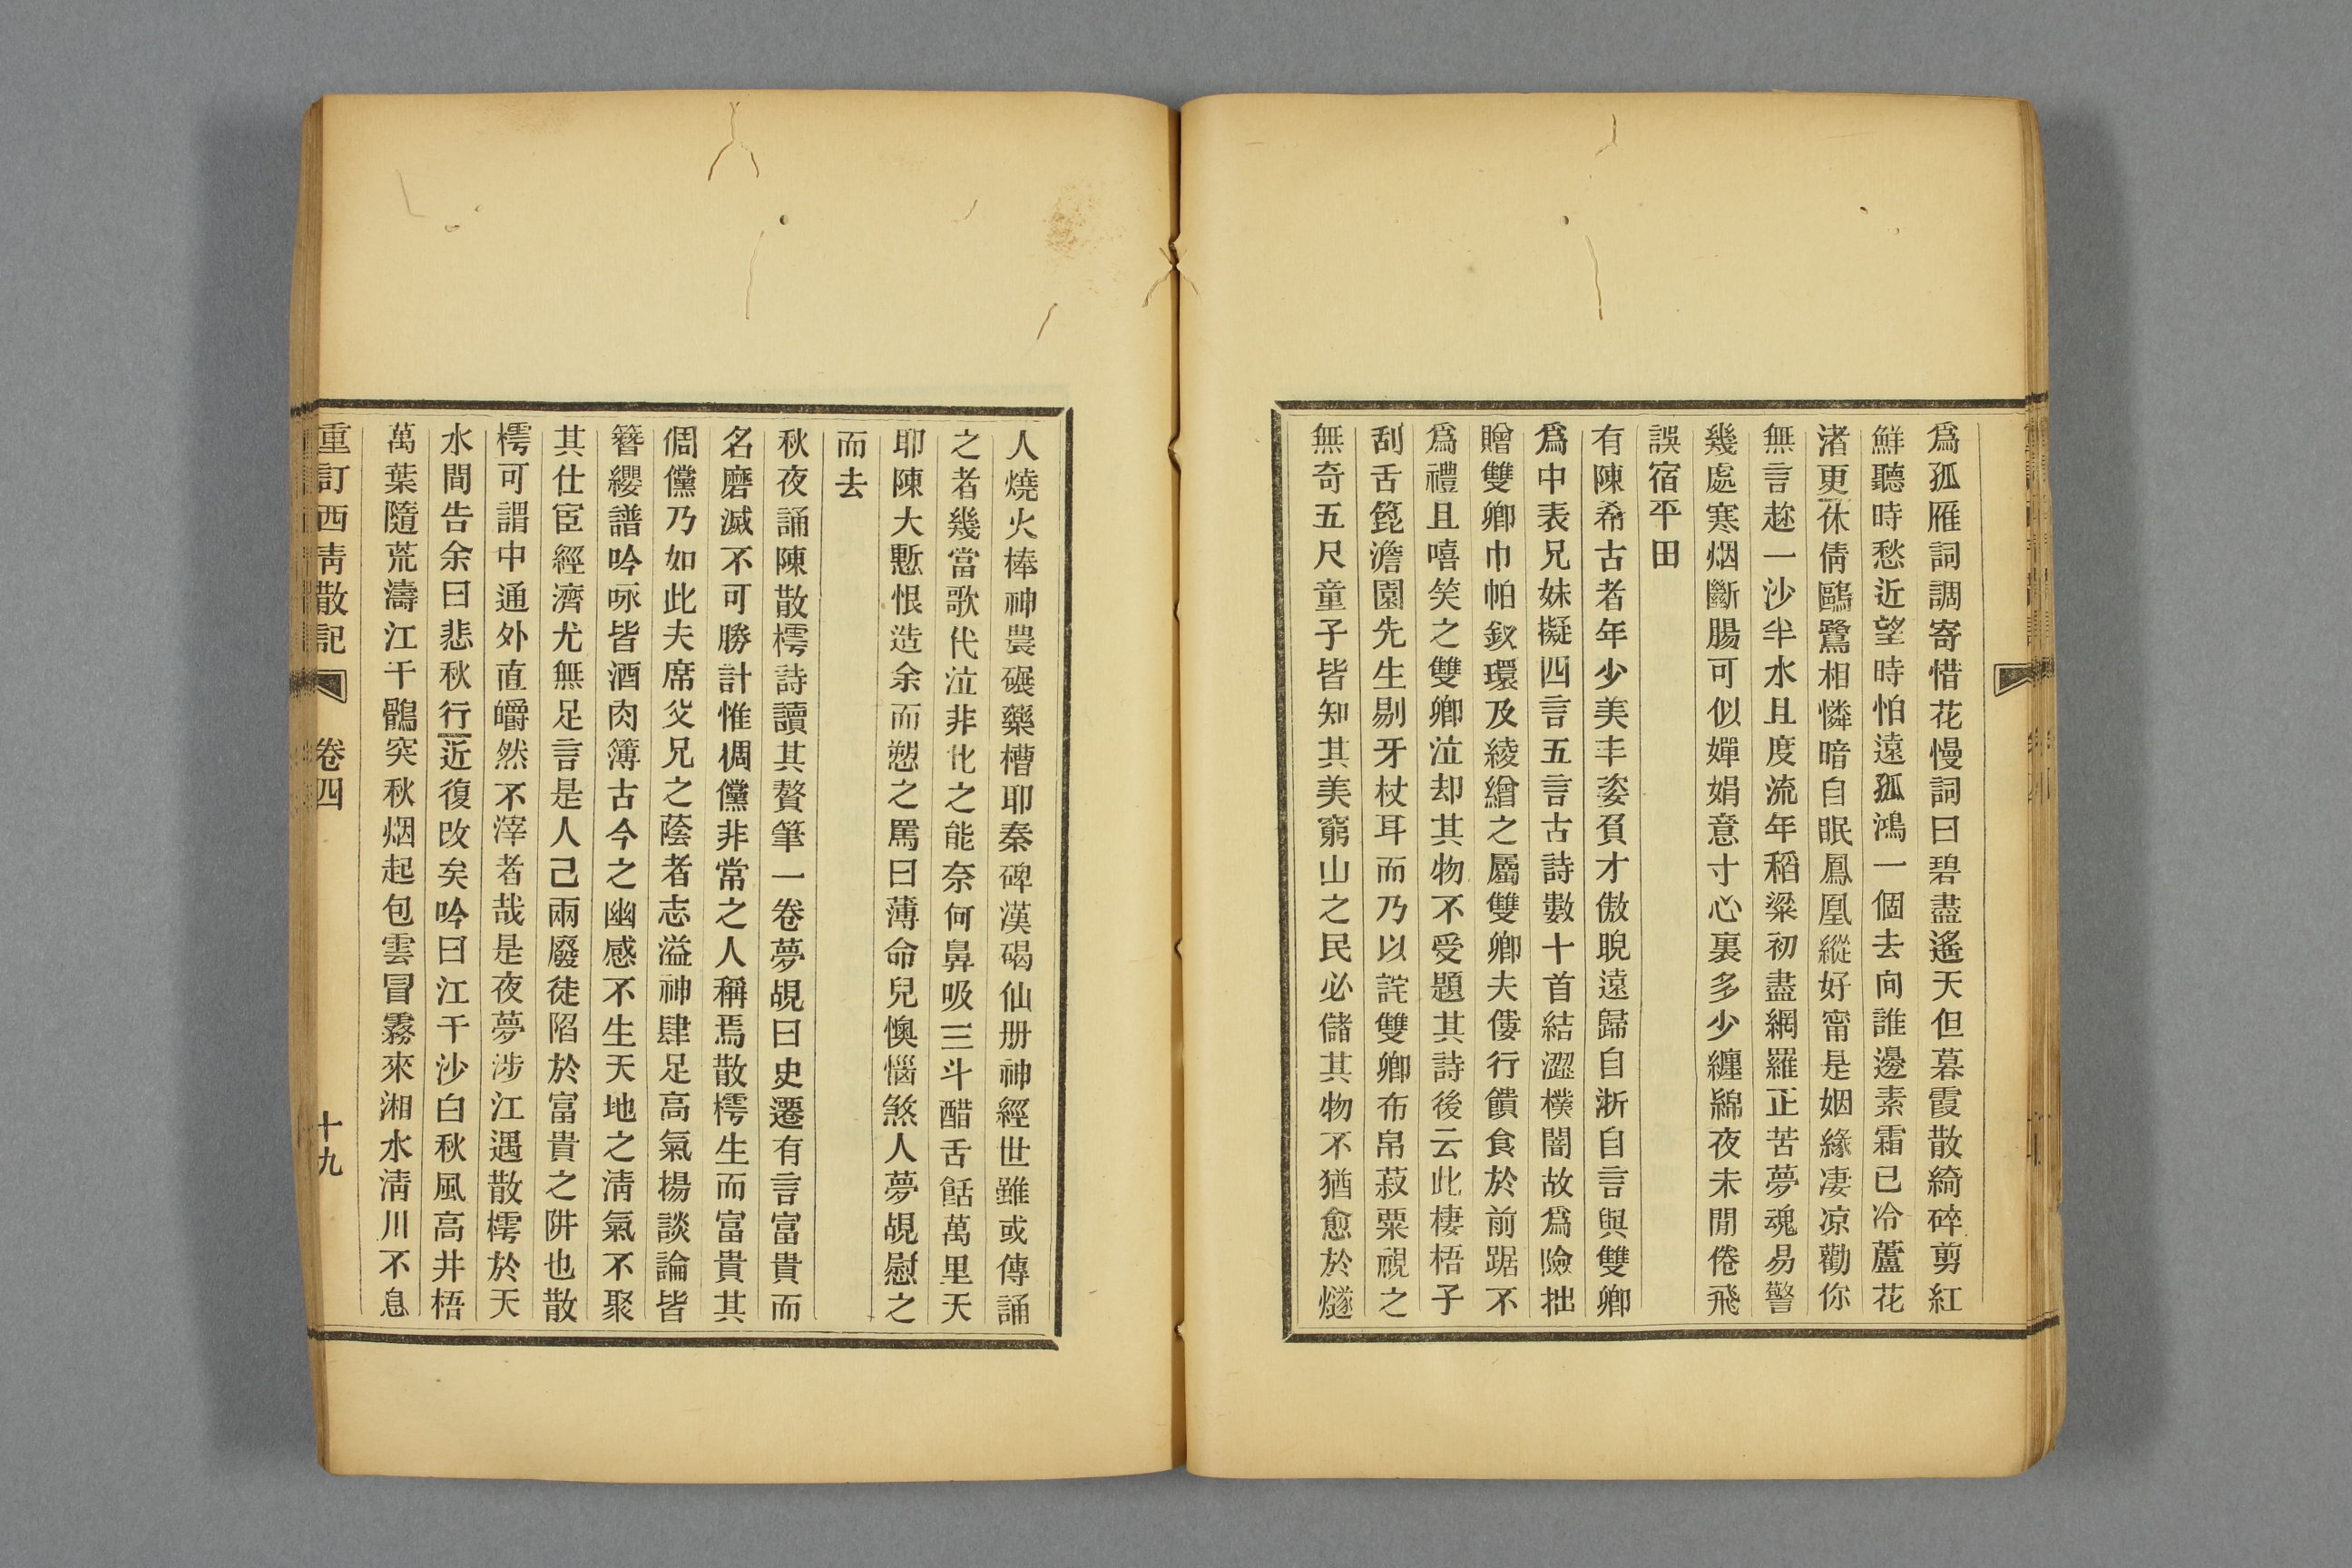 爲孤雁詞調寄惜花慢詞曰碧盡遙天但暮霞散綺碎剪紅
鮮聽時愁近望時怕遠孤鴻一個去向誰邊素霜已冷蘆花
渚更休倩鷗鷺相憐暗自眠鳳凰縱好甯是姻緣凄凉勸你
無言趂一沙半水且度流年稻粱初盡網羅正苦夢魂易警
幾處寒烟斷腸可似嬋娟意寸心裏多少纏綿夜未閒倦飛
誤宿平田
有陳希古者年少美丰姿負才傲睨遠歸自浙自言與雙卿
爲中表兄妹擬四言五言古詩數十首結澀樸闇故爲險拙
贈雙卿巾帕釵環及綾繒之屬雙卿夫僂行饋食於前踞不
爲禮且嘻笑之雙卿泣却其物不受題其詩後云此棲梧子
刮舌篦澹園先生剔牙杖耳而乃以詫雙卿布帛菽粟視之
無奇五尺童子皆知其美窮山之民必儲其物不猶愈於燧
人燒火棒神農碾藥槽耶秦碑漢碣仙册神經世雖或傳誦
之者幾當歌代泣非化之能奈何鼻吸三斗醋舌餂萬里天
耶陳大慙恨造余而愬之罵曰薄命兒懊惱煞人夢覘慰之
而去
秋夜誦陳散樗詩讀其贅筆一卷夢覘曰史遷有言富貴而
名磨滅不可勝計惟倜儻非常之人稱焉散樗生而富貴其
倜儻乃如此夫席父兄之蔭者志溢神肆足高氣揚談論皆
簪纓譜吟咏皆酒肉簿古今之幽感不生天地之淸氣不聚
其仕宦經濟尤無足言是人己兩廢徒陷於富貴之阱也散
樗可謂中通外直皭然不滓者哉是夜夢涉江遇散樗於天
水間告余曰悲秋行近復改矣吟曰江干沙白秋風高井梧
萬葉隨荒濤江千鶻突秋烟起包雲冒霧來湘水淸川不息
重訂西靑散記 卷四 十九